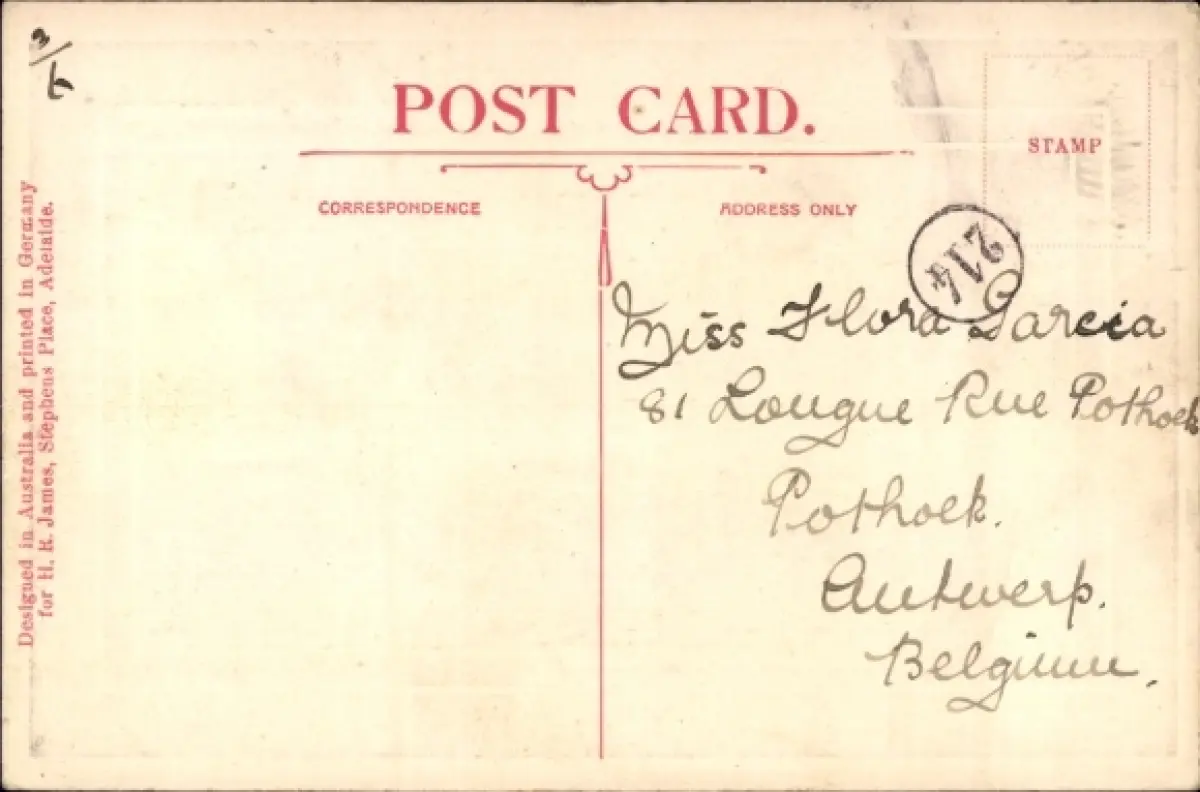 3/6
POST CARD.
STAMP
CORRESPONDENCE
ADDRESS ONLY
214
Miss Flora Garcia
81 Longue Rue Pothoek
Pothoek.
Antwerp.
Belgium.
Designed in Australia and printed in Germany
for H. R. James, Stephens Place, Adelaide.